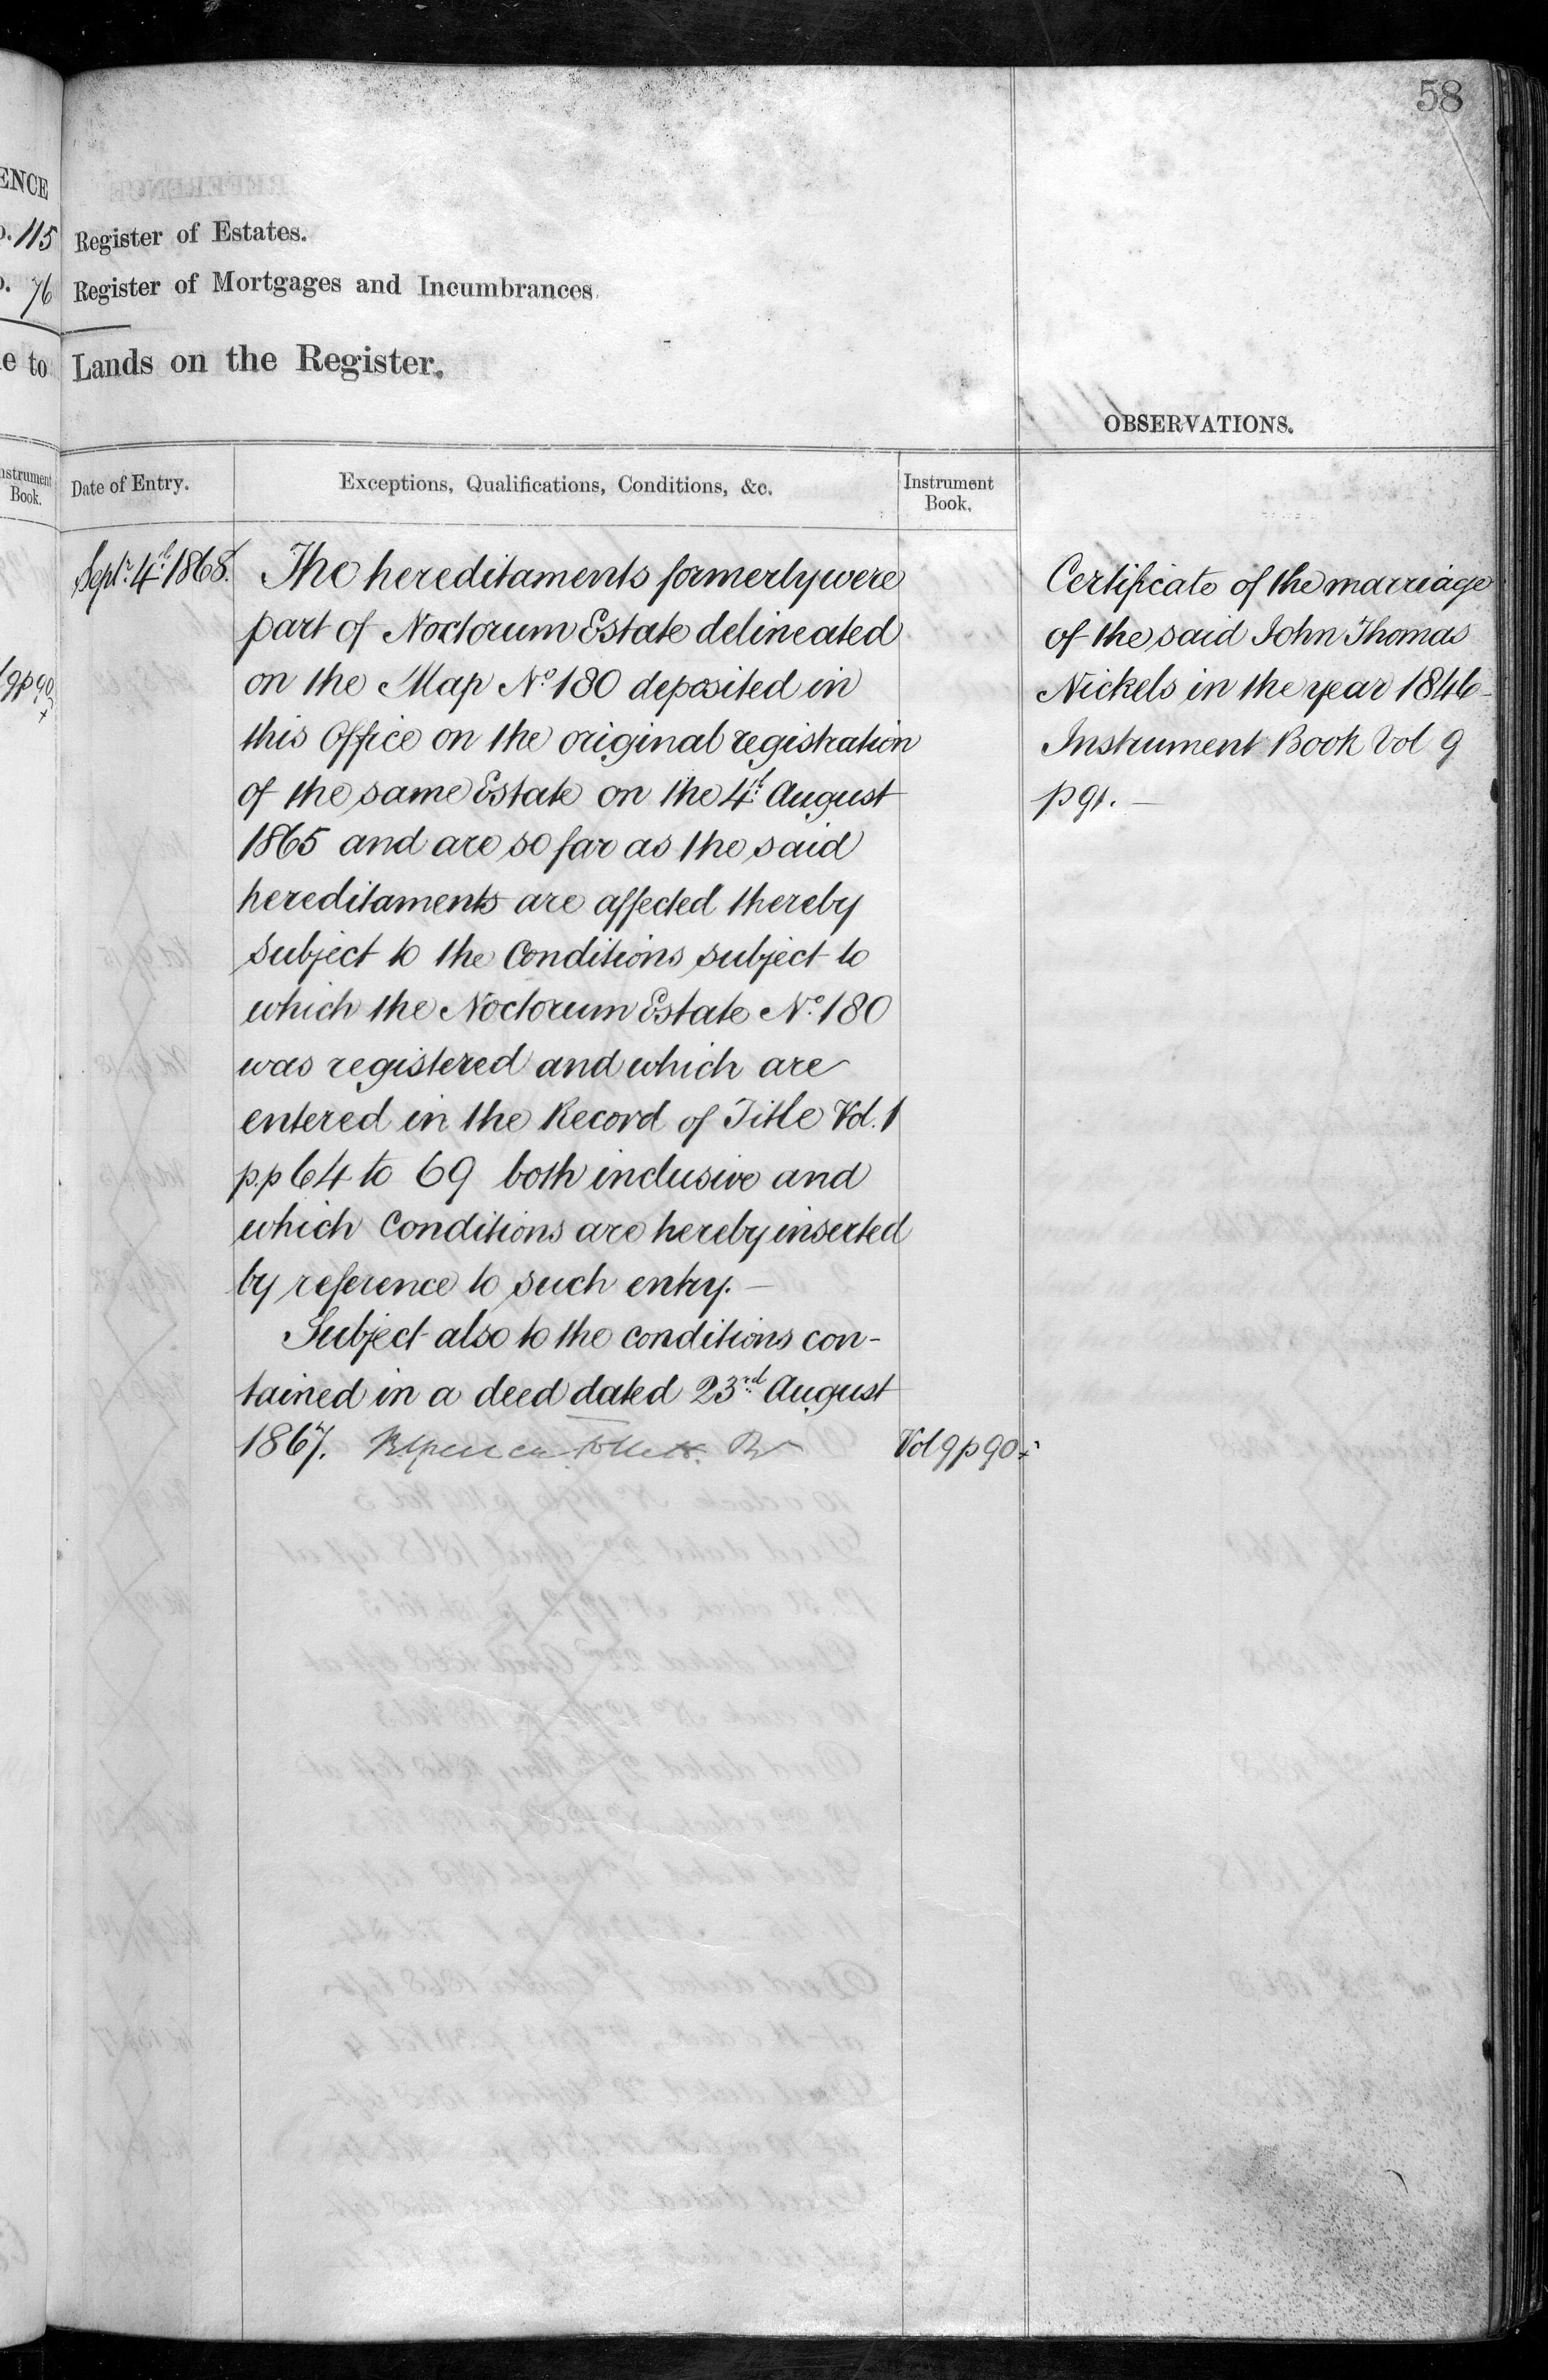 58
ENCE
115 Register of Estates.
76 Register of Mortgages and Incumbrances.
e to Lands on the Register.
OBSERVATIONS.
Instrument Book.
Date of Entry.
Exceptions, Qualifications, Conditions, &c.
Instrument Book.
Septr. 4th. 1868.
The hereditaments formerly were
part of Noctorum Estate delineated
on the Map No. 180 deposited in
this Office on the original registration
of the same Estate on the 4th. August
1865 and are so far as the said
hereditaments are affected thereby
subject to the Conditions subject to
which the Noctorum Estate No. 180
was registered and which are
entered in the Record of Title Vol. 1
p.p 64 to 69 both inclusive and
which Conditions are hereby inserted
by reference to such entry. —
Subject also to the conditions con-
tained in a deed dated 23rd. August
1867.
Vol 9 p 90
Certificate of the marriage
of the said John Thomas
Nickels in the year 1846 -
Instrument Book Vol 9
p 91. —
9 p 90